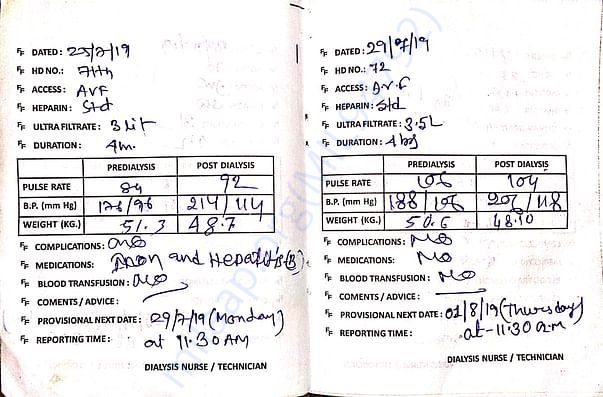 DATED: 25/7/19
HD NO.: 71th
ACCESS: AVF
HEPARIN: Std
ULTRA FILTRATE: 3 lit
DURATION: 4
PREDIALYSIS POST DIALYSIS
PULSE RATE 84 92
B.P. (mm Hg) 176/96 214/114
WEIGHT (KG.) 51.3 48.7
COMPLICATIONS: No
MEDICATIONS: Iron and Hepatitis(B)
BLOOD TRANSFUSION: No
COMENTS / ADVICE:
PROVISIONAL NEXT DATE: 29/7/19 (Monday)
REPORTING TIME: at 11.30 AM
DIALYSIS NURSE / TECHNICIAN
DATED: 29/7/19
HD NO.: 72
ACCESS: A.V.F
HEPARIN: Std
ULTRA FILTRATE: 3.5L
DURATION: 4 hrs
PREDIALYSIS POST DIALYSIS
PULSE RATE 106 104
B.P. (mm Hg) 188/106 206/118
WEIGHT (KG.) 50.6 48.10
COMPLICATIONS: No
MEDICATIONS: No
BLOOD TRANSFUSION: No
COMENTS / ADVICE:
PROVISIONAL NEXT DATE: 01/8/19 (Thursday)
REPORTING TIME: at-11:30 a.m
DIALYSIS NURSE / TECHNICIAN